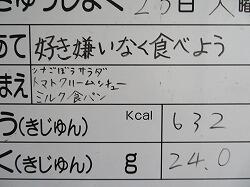 きゅうしょく 23日
あて 好き嫌いなく食べよう
まえ ツナごぼうサラダ
トマトクリームシチュー
ミルク/食パン
う(きじゅん) Kcal 632
く(きじゅん) g 24.0